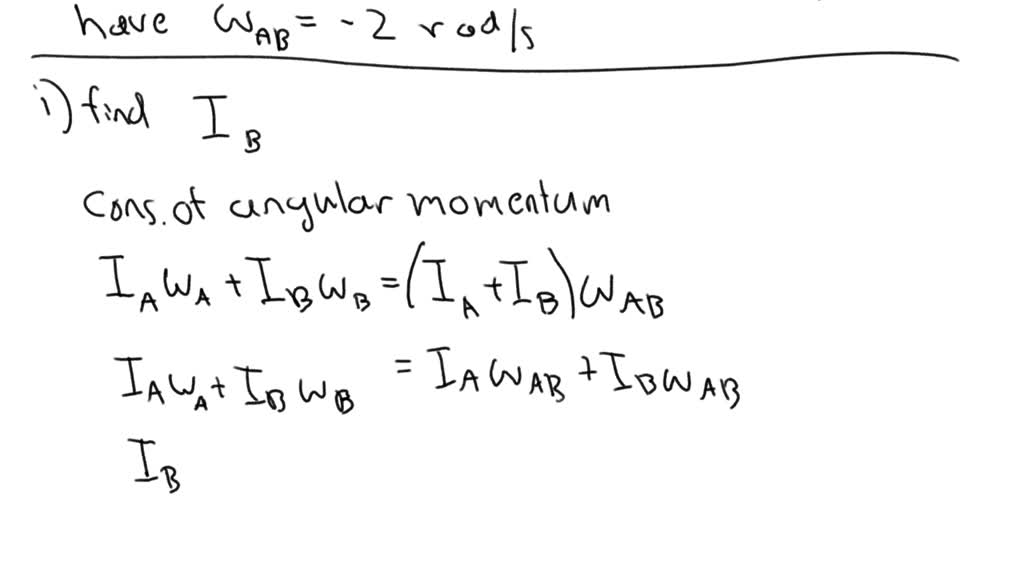 have ω_AB = -2 rad/s
i) find I_B
Cons. of angular momentum
I_A ω_A + I_B ω_B = (I_A + I_B) ω_AB
I_A ω_A + I_B ω_B = I_A ω_AB + I_B ω_AB
I_B